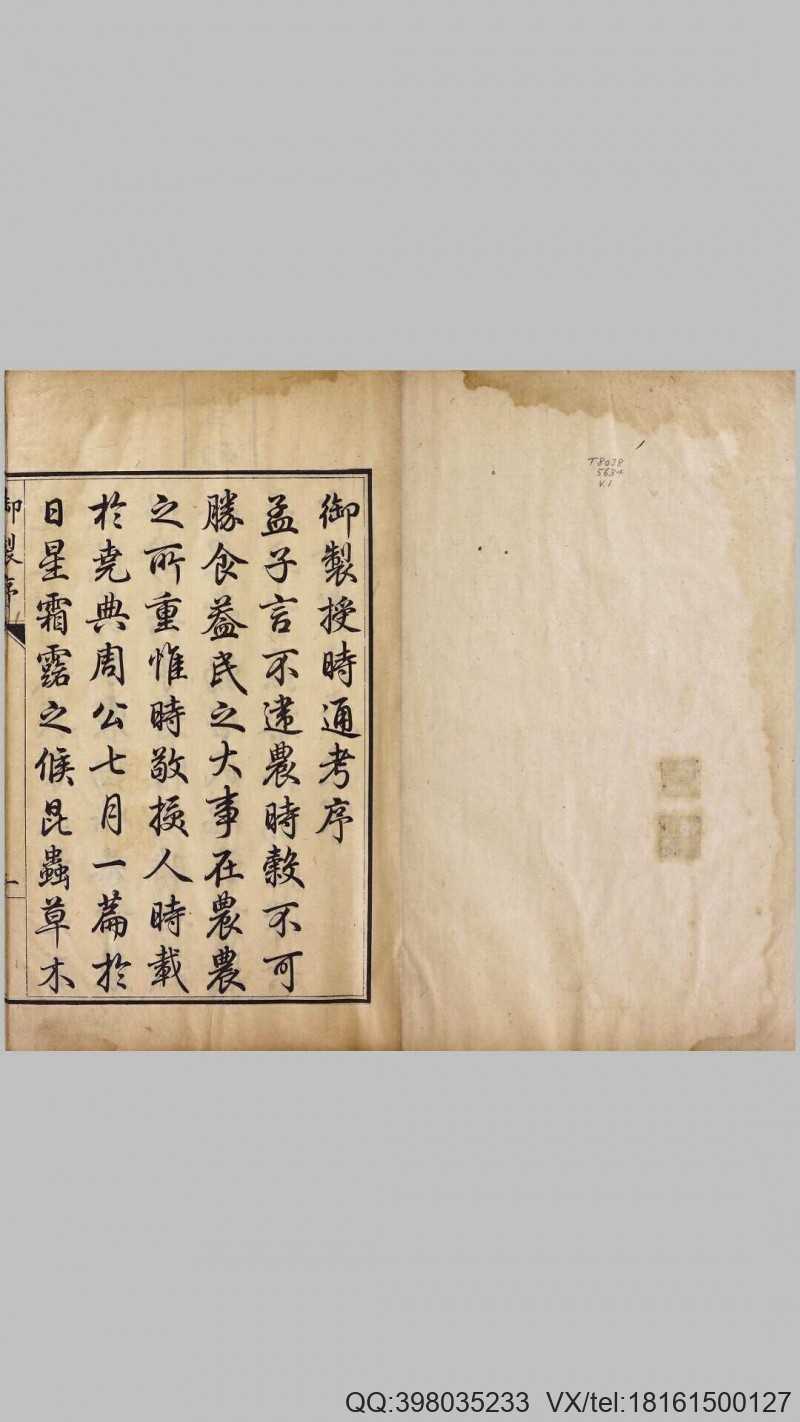 御製授時通考序
孟子言不違農時穀不可
勝食益民之大事在農農
之所重惟時敬授人時載
於堯典周公七月一篇於
日星霜露之候昆蟲草木
御製序
一
T8038
5634
V.1
QQ:398035233 VX/tel:18161500127